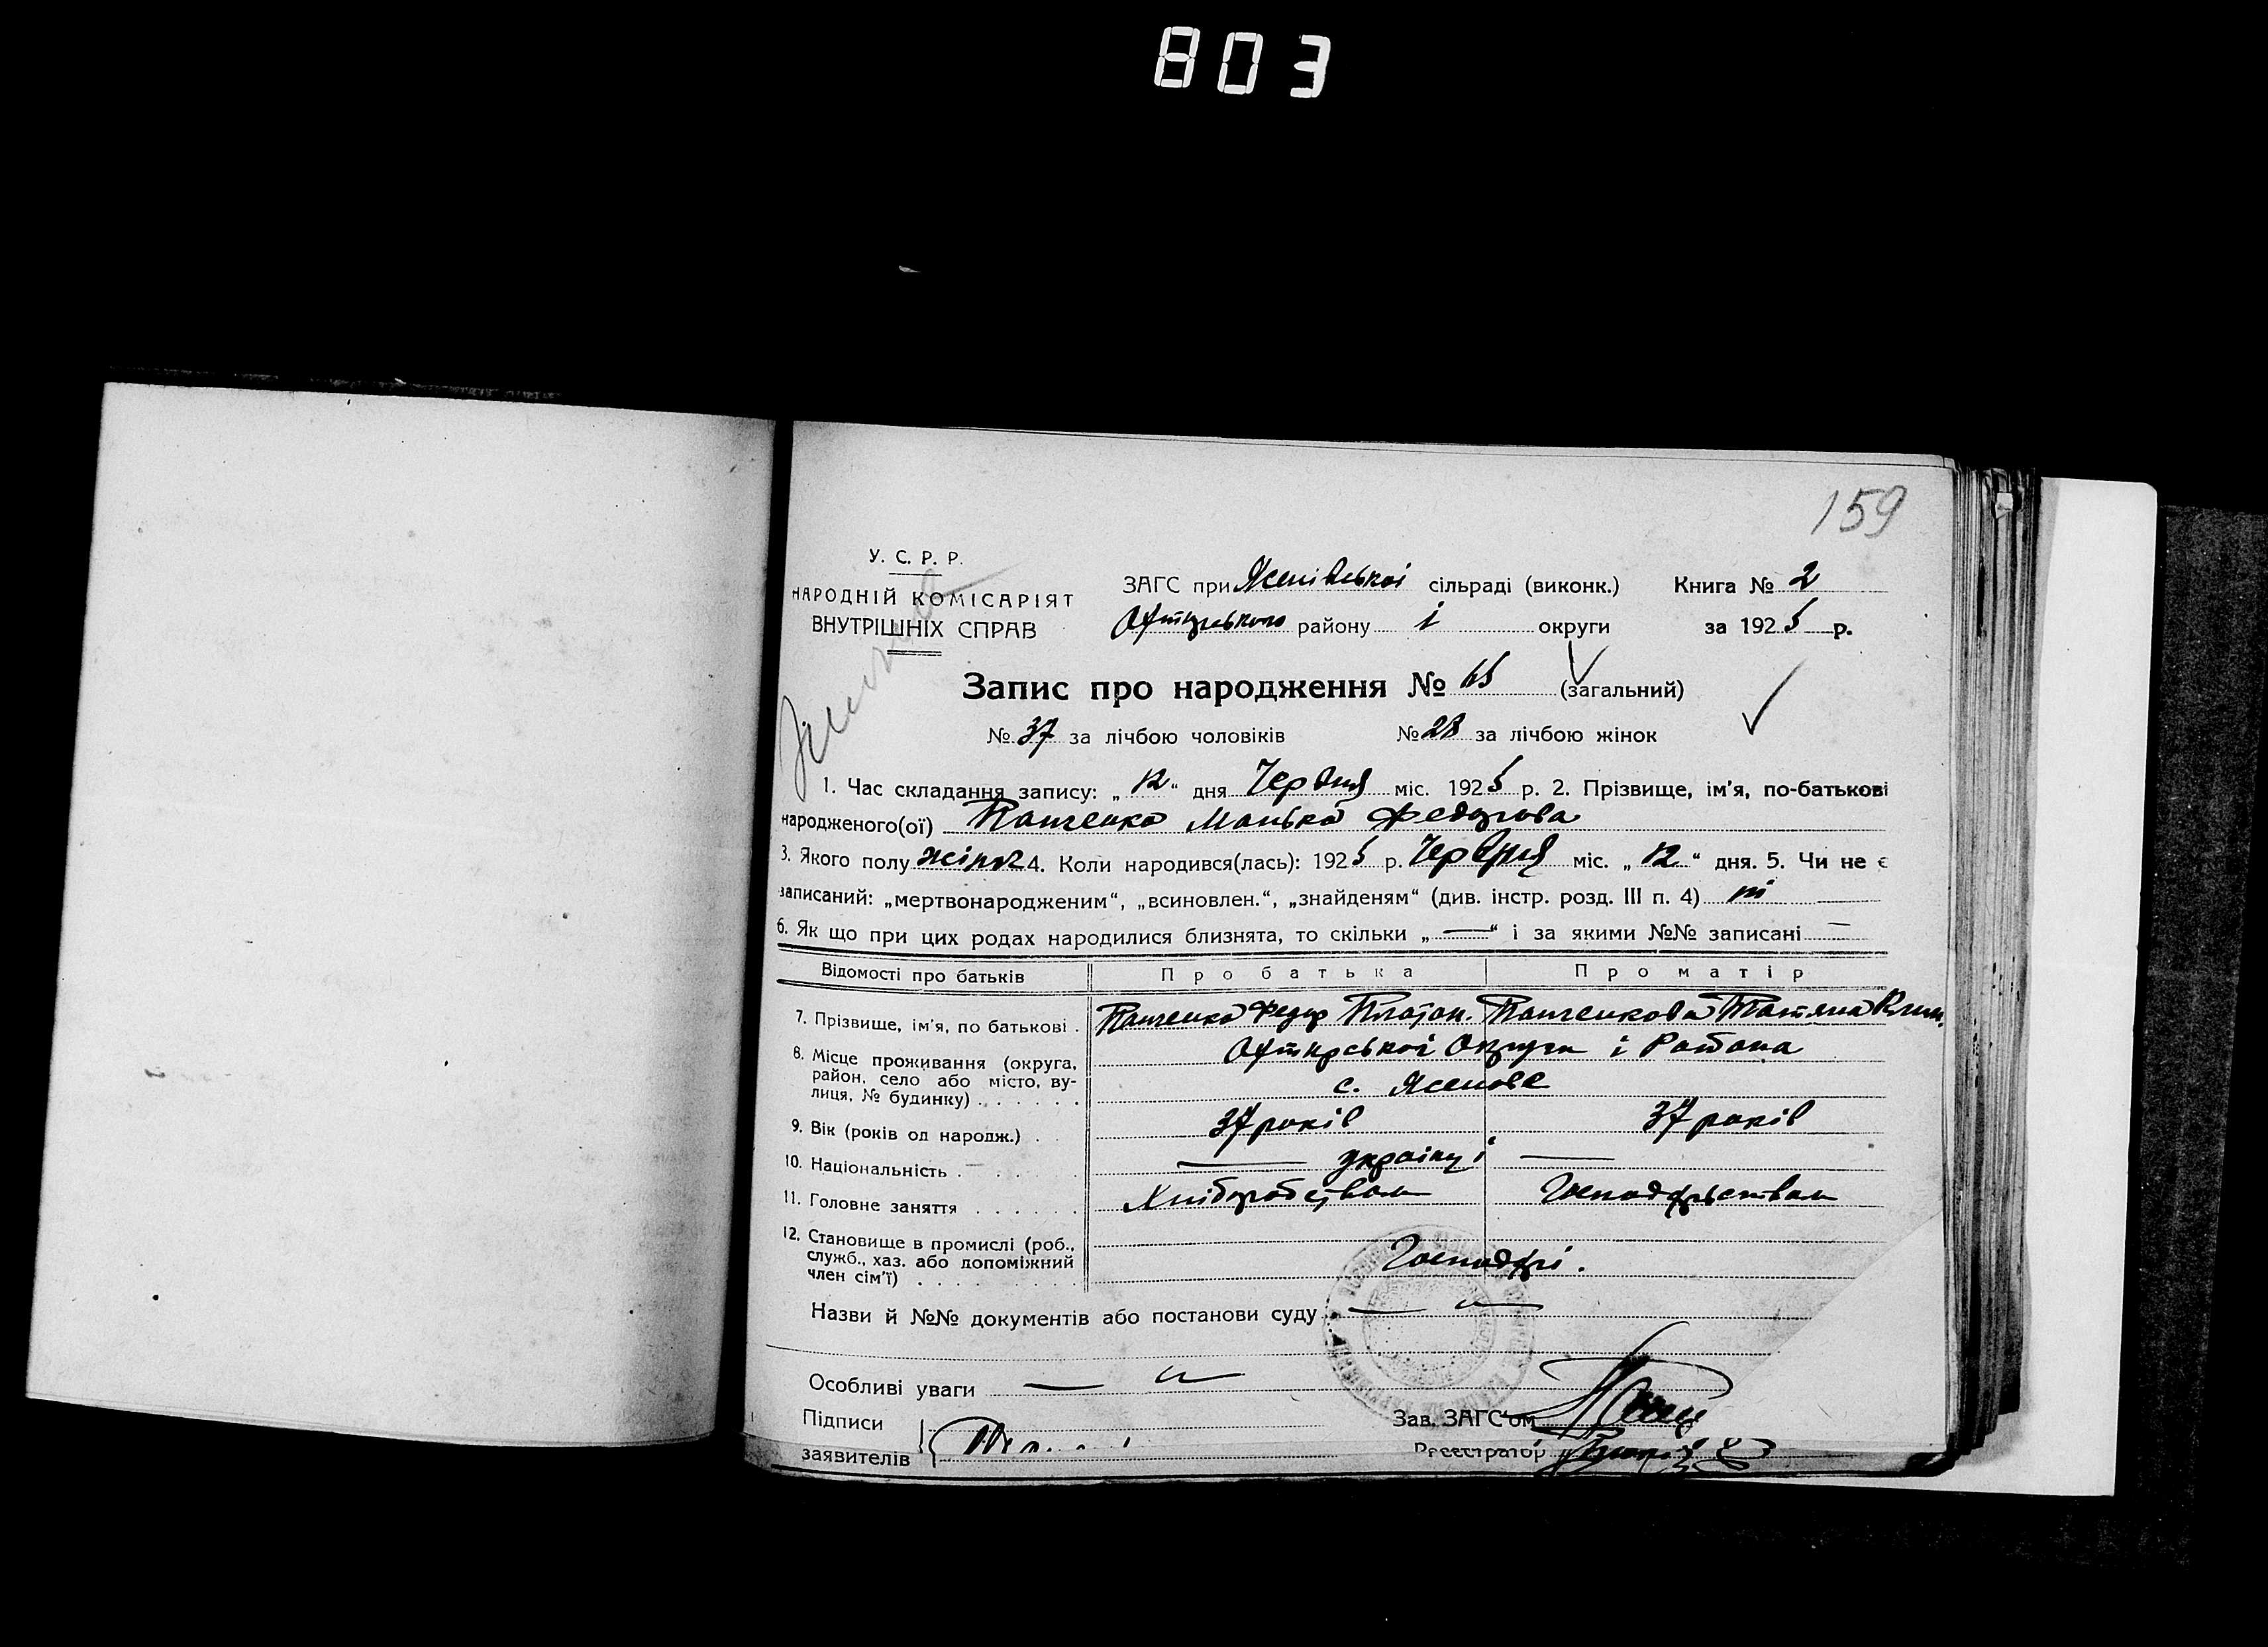 803
159
У. С. Р. Р.
НАРОДНІЙ КОМІСАРІЯТ
ВНУТРІШНІХ СПРАВ
ЗАГС при Ясенівської сільраді (виконк.) Книга № 2
Охтирського району і округи за 1925 р.
Запис про народження № 65 (загальний)
№ 37 за лічбою чоловіків № 28 за лічбою жінок
1. Час складання запису: „12“ дня Червня міс. 1925 р. 2. Прізвище, ім'я, по-батькові
народженого(ої) Панченко Манька Федорова
3. Якого полу жіноч 4. Коли народився(лась): 1925 р. Червня міс. „12“ дня. 5. Чи не є
записаний: „мертвонародженим“, „всиновлен.“, „знайденям“ (див. інстр. розд. III п. 4) ні
6. Як що при цих родах народилися близнята, то скільки „—“ і за якими №№ записані —
Відомості про батьків Про батька Про матір
7. Прізвище, ім'я, по батькові . Панченко Федор Платон. Панченкова Татяна Клим.
8. Місце проживання (округа, район, село або місто, вулиця, № будинку) . . . . . . Охтирської Округи і Района
с. Ясенове
9. Вік (років од народж.) . . 37 років 37 років
10. Національність . . . . . — українці —
11. Головне заняття . . . . . . Хліборобством Господарством
12. Становище в промислі (роб., служб., хаз. або допоміжний член сім'ї) . . . . . . . . . Господарі.
Назви й №№ документів або постанови суду —
Особливі уваги —
Підписи
заявителів
Зав. ЗАГС'ом
Реєстратор